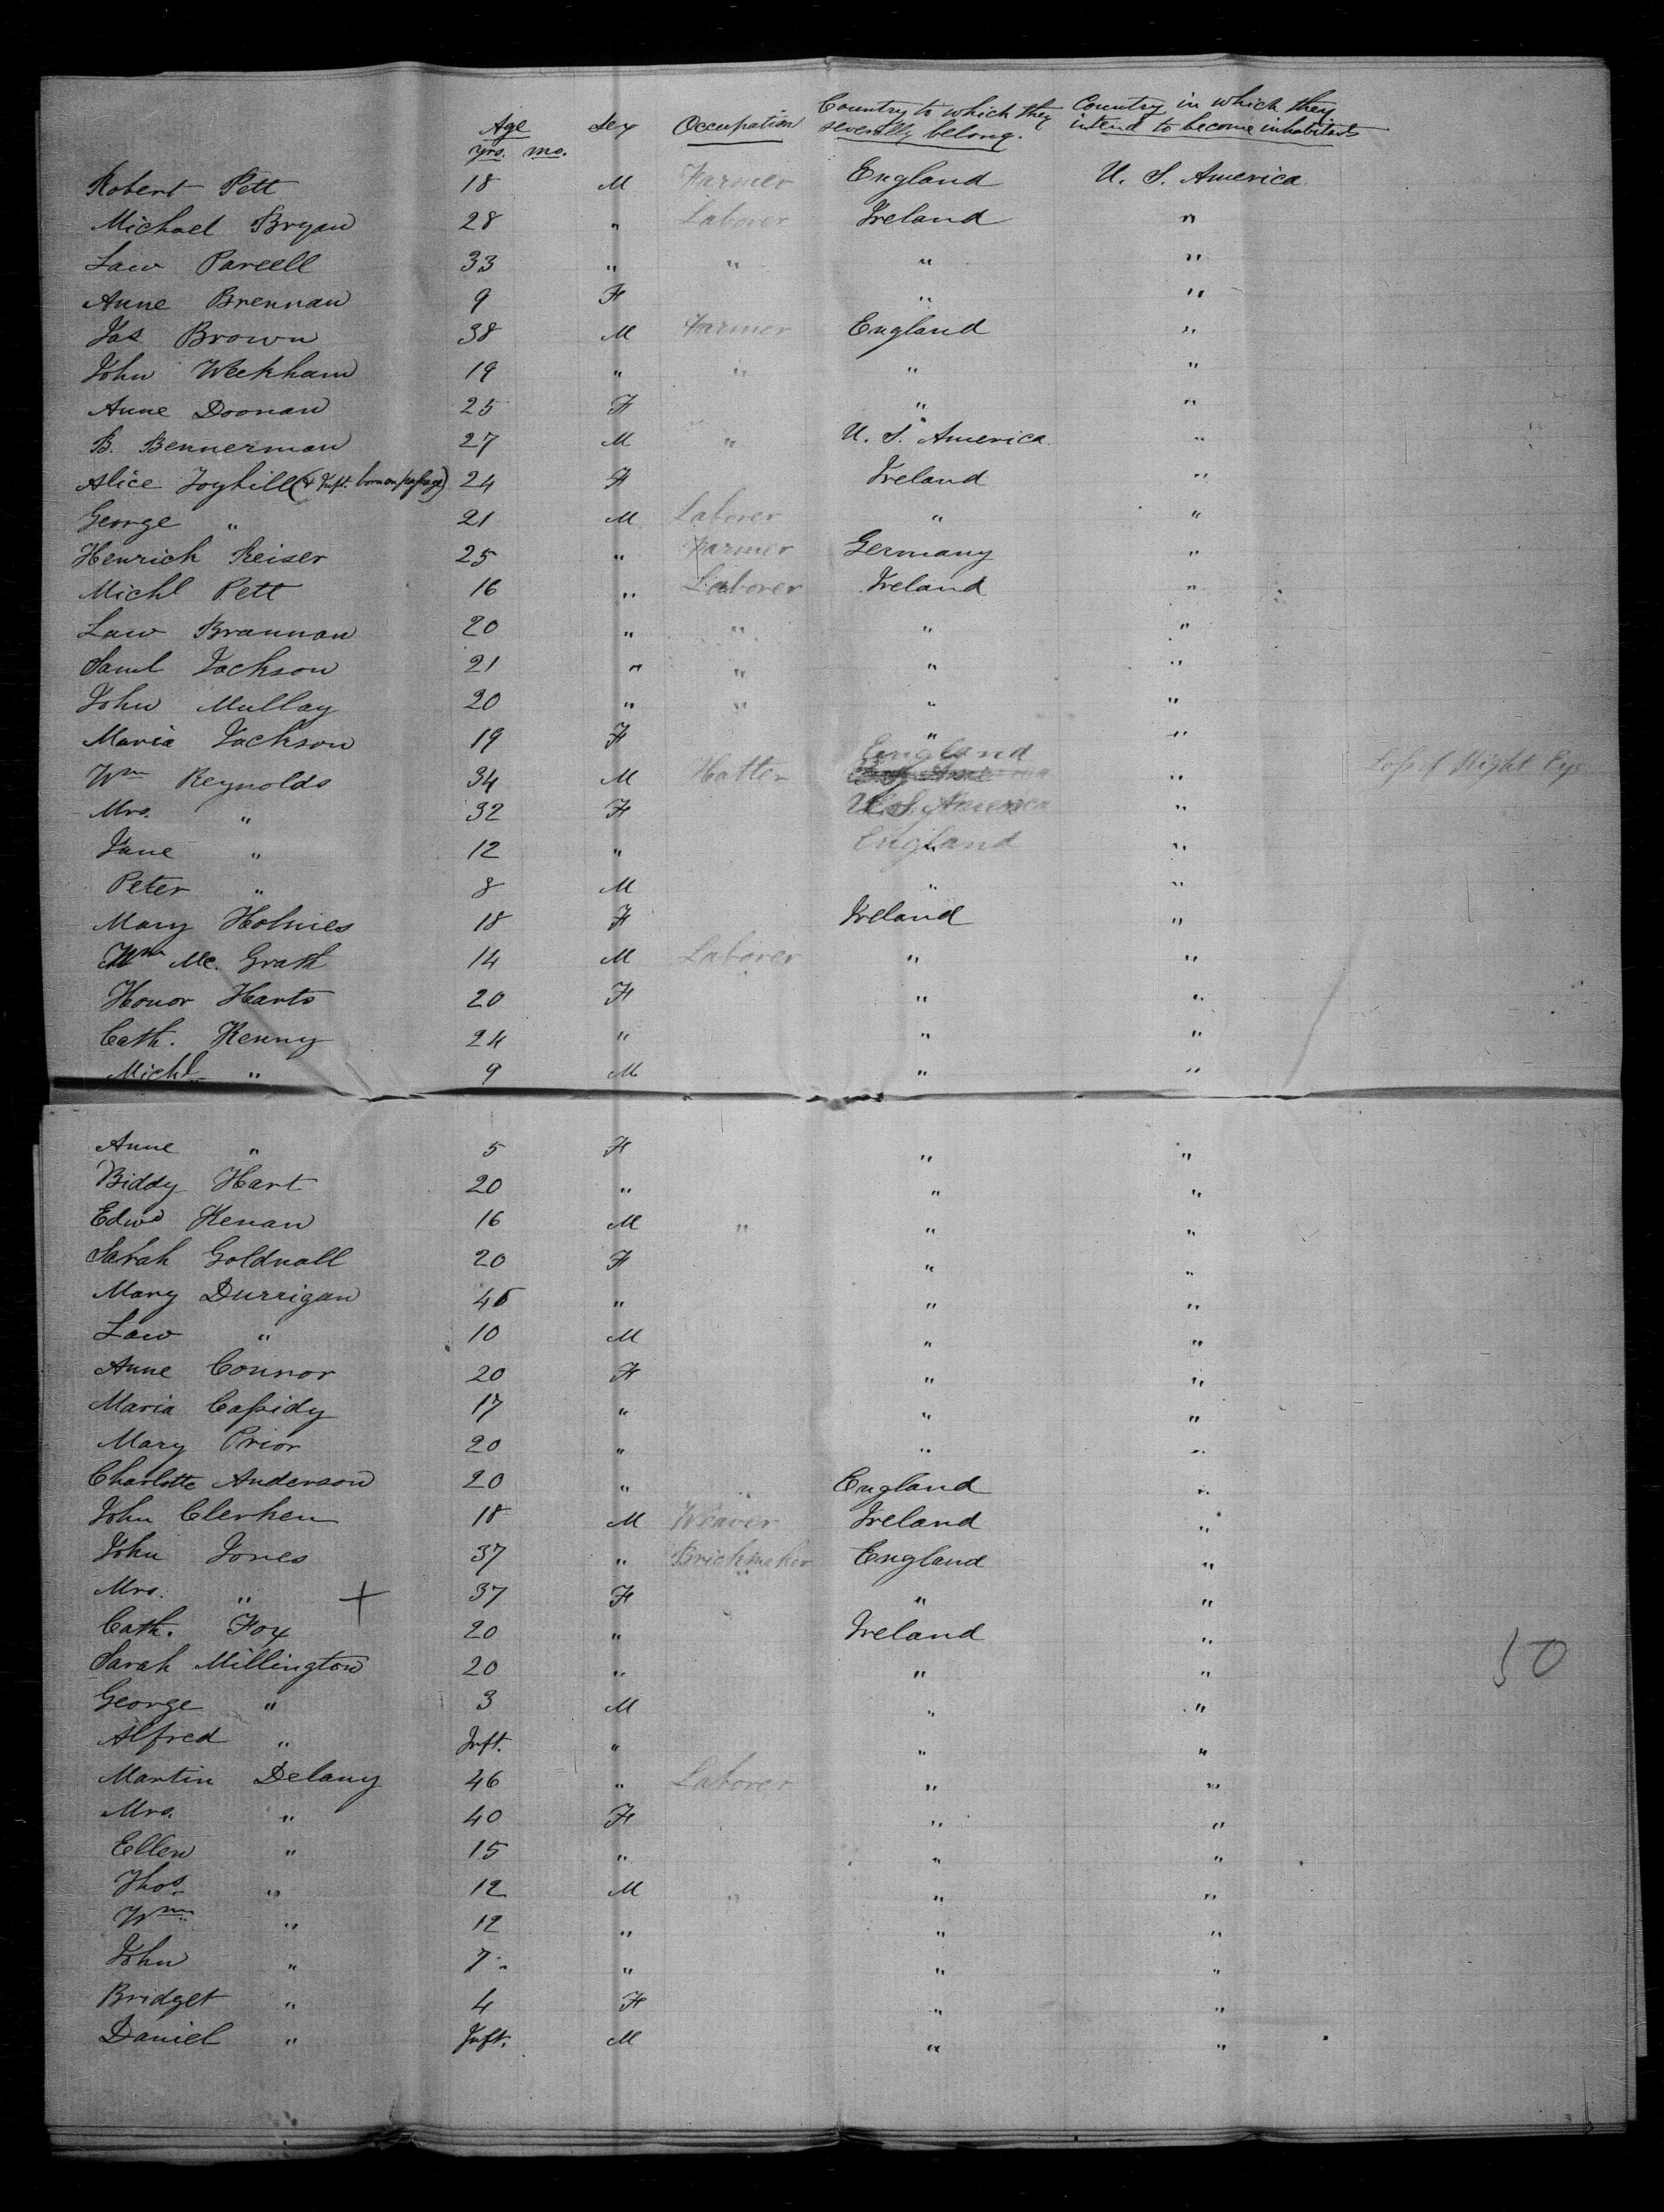 Age Sex Occupation Country to which they Country in which they
yrs. mo. severally belong. intend to become inhabitants
Robert Pett 18 M Farmer England U. S. America
Michael Bryan 28 " Laborer Ireland "
Law Parcell 33 " " " "
Anne Brennan 9 F " "
Jas Brown 38 M Farmer England "
John Weekham 19 " " " "
Anne Doonan 25 F " "
B. Bennerman 27 M " U. S. America "
Alice Joyhill (& Inft. born on passage) 24 F Ireland "
George " 21 M Laborer " "
Henrich Reiser 25 " Farmer Germany "
Michl Pett 16 " Laborer Ireland "
Law Brannan 20 " " " "
Saml Jackson 21 " " " "
John Mullay 20 " " " "
Maria Jackson 19 F " "
Wm Reynolds 34 M Hatter England " Loss of Right Eye
Mrs. " 32 F U. S. America "
Jane " 12 " England "
Peter " 8 M " "
Mary Holmes 18 F Ireland "
Wm Mc. Grath 14 M Laborer " "
Honor Harts 20 F " "
Cath. Kenny 24 " " "
Michl " 9 M " "
Anne " 5 F " "
Biddy Hart 20 " " "
Edwd Kenan 16 M " " "
Sarah Goldnall 20 F " "
Mary Durrigan 45 " " "
Law " 10 M " "
Anne Connor 20 F " "
Maria Cassidy 17 " " "
Mary Prior 20 " " "
Charlotte Anderson 20 " England "
John Clerken 18 M Weaver Ireland "
John Jones 37 " Brickmaker England "
Mrs. " + 37 F " "
Cath. Fox 20 " Ireland "
Sarah Millington 20 " " " 50
George " 3 M " "
Alfred " Inft. " " "
Martin Delany 46 " Laborer " "
Mrs. " 40 F " "
Ellen " 15 " " "
Thos " 12 M " " "
Wm " 12 " " "
John " 7 " " "
Bridget " 4 F " "
Daniel " Inft. M " "